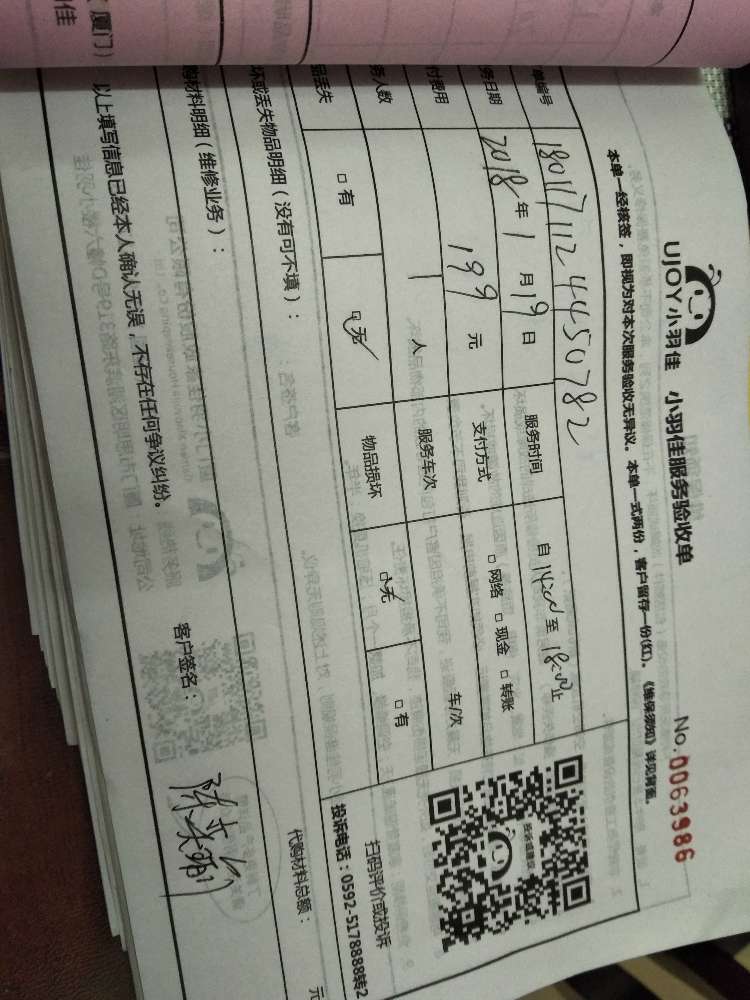 UJOY小羽佳 小羽佳服务验收单
No. 0063986
本单一经核签，即视为对本次服务验收无异议。本单一式两份，客户留存一份(红)。《维保须知》详见背面。
单编号 1801171124450782
务日期 2018年1月19日 服务时间 自14:00至18:00止
付费用 199元 支付方式 □网络 □现金 □转账
务人数 1人 服务车次 车/次
品丢失 □有 □无 物品损坏 □无 □有
投诉建议
扫码评价或投诉
投诉电话：0592-5178888转2
坏或丢失物品明细（没有可不填）：
购材料明细（维修业务）：
代购材料总额： 元
厦门） 以上填写信息已经本人确认无误，不存在任何争议纠纷。 客户签名：
佳